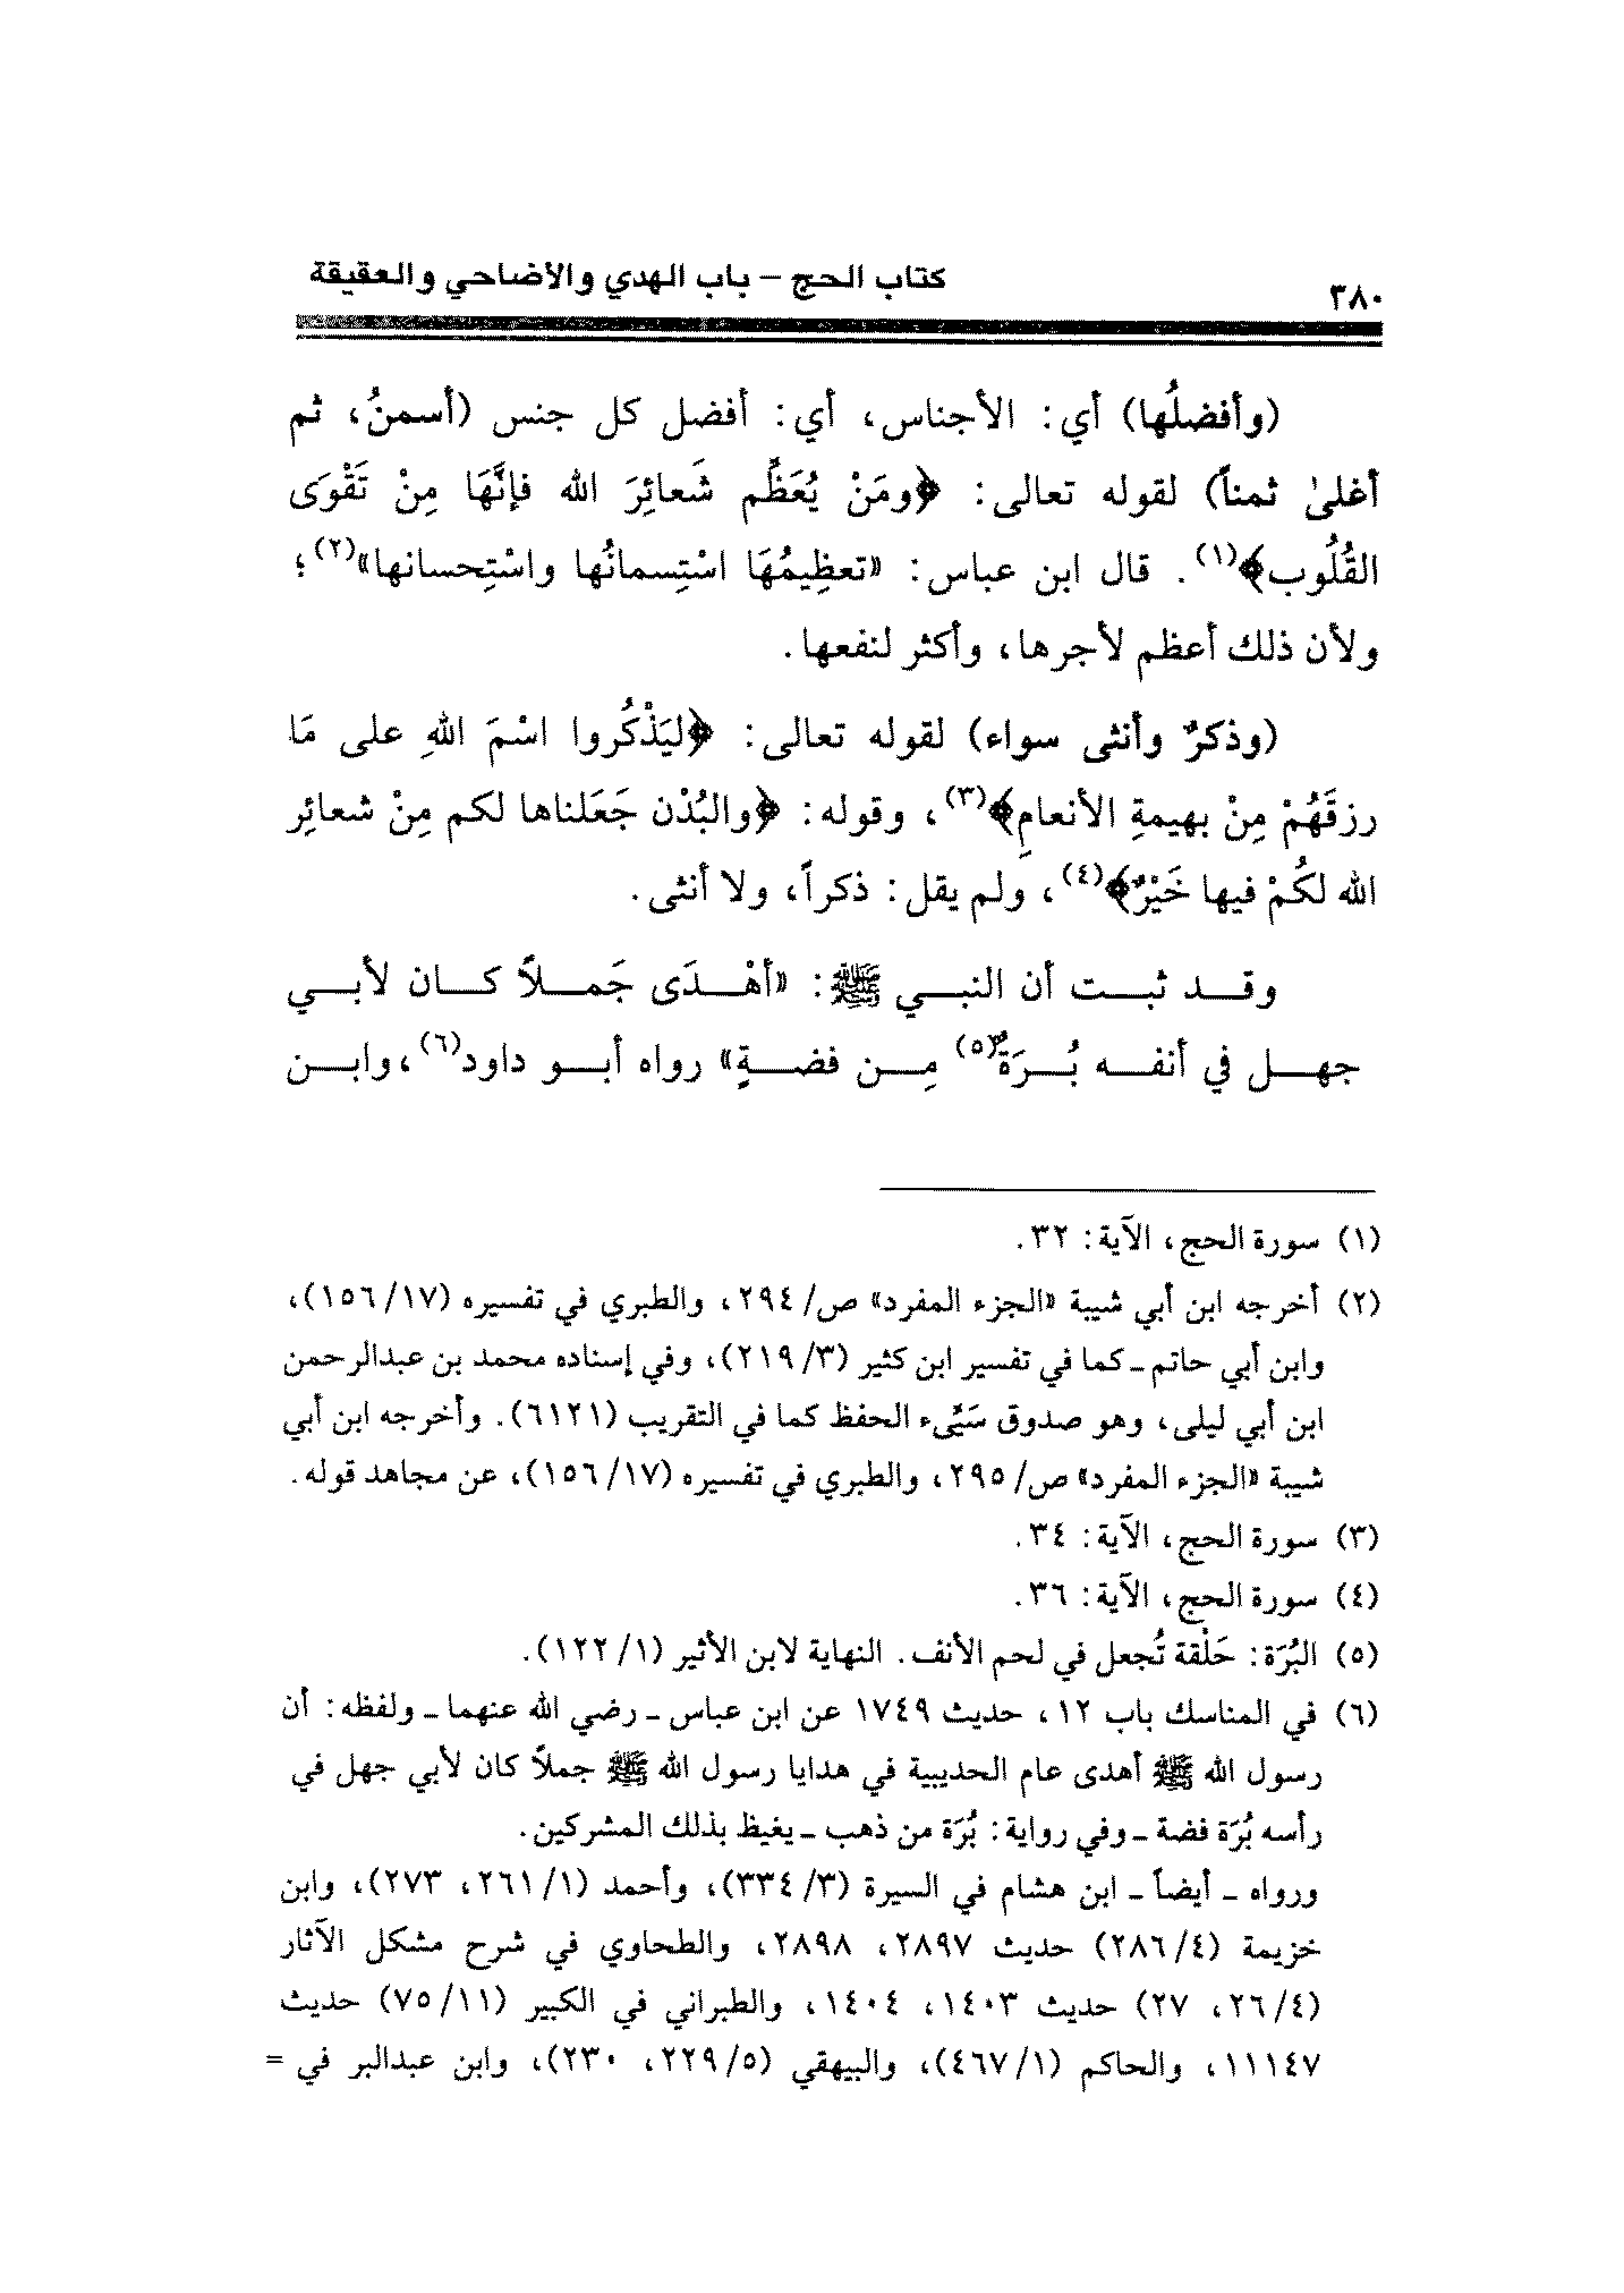 كتاب الحج – باب الهدي والأضاحي والعقيقة
٣٨٠
(وأفضلُها) أي: الأجناس، أي: أفضل كل جنس (أسمنُ، ثم
أغلىٰ ثمناً) لقوله تعالى: ﴿ومَنْ يُعَظِّم شَعائِرَ الله فإنَّهَا مِنْ تَقْوَى
القُلُوب﴾(١). قال ابن عباس: «تعظِيمُهَا اسْتِسمانُها واسْتِحسانها»(٢)؛
ولأن ذلك أعظم لأجرها، وأكثر لنفعها.
(وذكرٌ وأنثى سواء) لقوله تعالى: ﴿ليَذْكُروا اسْمَ اللهِ على مَا
رزقَهُمْ مِنْ بهيمةِ الأنعامِ﴾(٣)، وقوله: ﴿والبُدْن جَعَلناها لكم مِنْ شعائِر
الله لكُمْ فيها خَيْرٌ﴾(٤)، ولم يقل: ذكراً، ولا أنثى.
وقد ثبت أن النبي ﷺ: «أهْدَى جَملاً كان لأبي
جهل في أنفه بُرَةٌ(٥) مِن فضةٍ» رواه أبو داود(٦)، وابن
(١) سورة الحج، الآية: ٣٢.
(٢) أخرجه ابن أبي شيبة «الجزء المفرد» ص/ ٢٩٤، والطبري في تفسيره (١٧/ ١٥٦)،
وابن أبي حاتم ـ كما في تفسير ابن كثير (٣/ ٢١٩)، وفي إسناده محمد بن عبدالرحمن
ابن أبي ليلى، وهو صدوق سَيِّىء الحفظ كما في التقريب (٦١٢١). وأخرجه ابن أبي
شيبة «الجزء المفرد» ص/ ٢٩٥، والطبري في تفسيره (١٧/ ١٥٦)، عن مجاهد قوله.
(٣) سورة الحج، الآية: ٣٤.
(٤) سورة الحج، الآية: ٣٦.
(٥) البُرَة: حَلْقة تُجعل في لحم الأنف. النهاية لابن الأثير (١/ ١٢٢).
(٦) في المناسك باب ١٢، حديث ١٧٤٩ عن ابن عباس ـ رضي الله عنهما ـ ولفظه: أن
رسول الله ﷺ أهدى عام الحديبية في هدايا رسول الله ﷺ جملاً كان لأبي جهل في
رأسه بُرَة فضة ـ وفي رواية: بُرَة من ذهب ـ يغيظ بذلك المشركين.
ورواه ـ أيضاً ـ ابن هشام في السيرة (٣/ ٣٣٤)، وأحمد (١/ ٢٦١، ٢٧٣)، وابن
خزيمة (٤/ ٢٨٦) حديث ٢٨٩٧، ٢٨٩٨، والطحاوي في شرح مشكل الآثار
(٤/ ٢٦، ٢٧) حديث ١٤٠٣، ١٤٠٤، والطبراني في الكبير (١١/ ٧٥) حديث
١١١٤٧، والحاكم (١/ ٤٦٧)، والبيهقي (٥/ ٢٢٩، ٢٣٠)، وابن عبدالبر في =